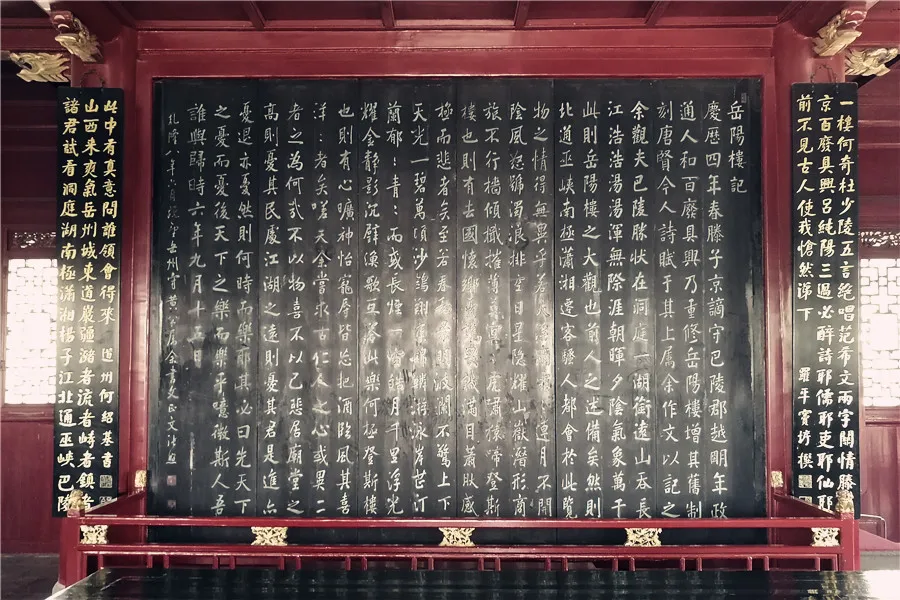 一樓何奇杜少陵五言絕唱范希文兩字關情滕子
京百廢具興呂純陽三過必醉詩耶儒耶吏耶仙耶
前不見古人使我愴然涕下 羅平竇垿撰
岳陽樓記
慶歷四年春滕子京謫守巴陵郡越明年政
通人和百廢具興乃重修岳陽樓增其舊制
刻唐賢今人詩賦于其上属余作文以記之
余觀夫巴陵勝狀在洞庭一湖銜遠山吞長
江浩浩湯湯渾無際涯朝暉夕陰氣象萬千
此則岳陽樓之大觀也前人之述備矣然則
北通巫峽南極瀟湘遷客騷人都會於此覽
物之情得無異乎若夫霪雨霏霏連月不開
陰風怒號濁浪排空日星隱耀山嶽潛形商
旅不行檣傾檝摧薄暮冥冥虎嘯猿啼登斯
樓也則有去國懷鄉憂讒畏譏滿目蕭然感
極而悲者矣至若春和景明波瀾不驚上下
天光一碧萬頃沙鷗翔集錦鱗游泳岸芷汀
蘭郁:青:而或長煙一空皓月千里浮光
耀金靜影沉璧漁歌互答此樂何極登斯樓
也則有心曠神怡寵辱皆忘把酒臨風其喜
洋:者矣嗟夫余嘗求古仁人之心或異二
者之為何哉不以物喜不以己悲居廟堂之
高則憂其民處江湖之遠則憂其君是進亦
憂退亦憂然則何時而樂耶其必曰先天下
之憂而憂後天下之樂而樂乎噫微斯人吾
誰與歸時六年九月十五日
乾隆八年六月 岳州守黃 書
諸君試看洞庭湖南極瀟湘揚子江北通巫峽巴陵
山西来爽氣岳州城東道巖疆瀦者流者峙者鎮者
此中有真意問誰領會得來 道州何紹基書